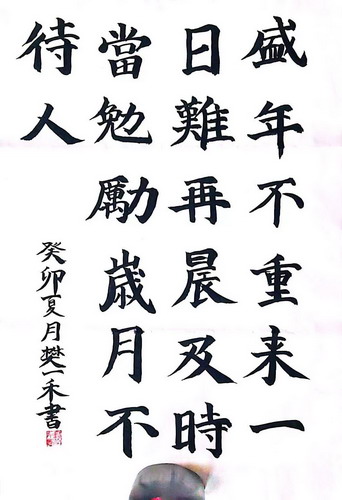 盛年不重来一
日難再晨及時
當勉勵歲月不
待人
癸卯夏月樊一禾書